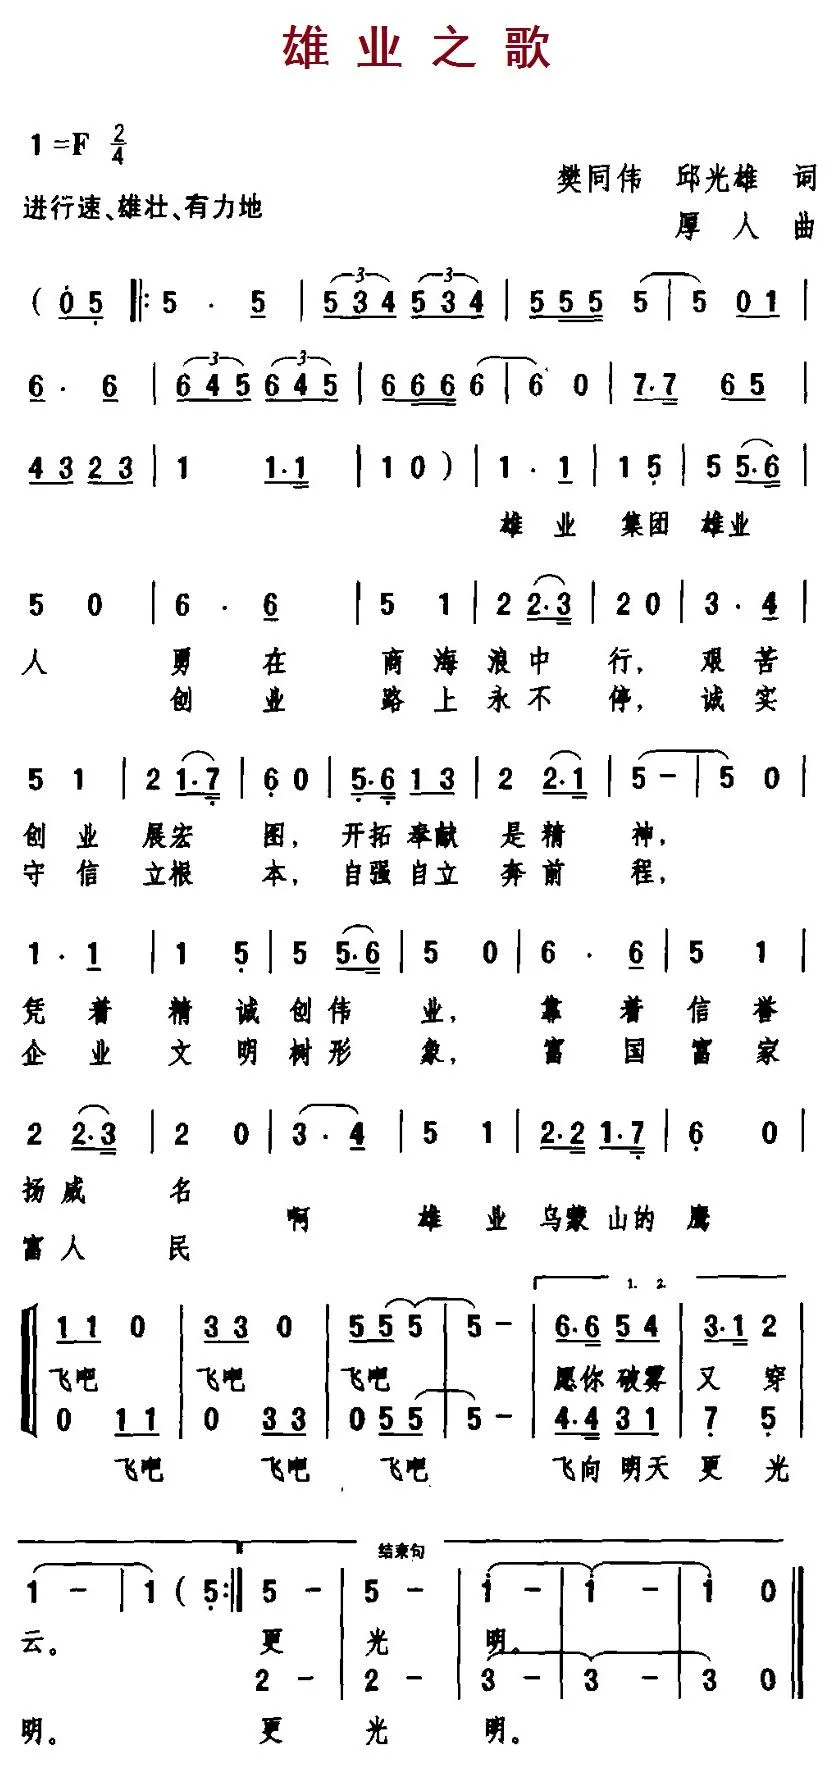 雄业之歌
1=F 2/4
樊同伟 邱光雄 词
进行速、雄壮、有力地
厚人 曲
( 0 5 ‖: 5 . 5 | 5 3 4 5 3 4 | 5 5 5 5 | 5 0 1 |
6 . 6 | 6 4 5 6 4 5 | 6 6 6 6 | 6 0 | 7. 7 6 5 |
4 3 2 3 | 1 1. 1 | 1 0 ) | 1 . 1 | 1 5 | 5 5. 6 |
雄 业 集团 雄业
5 0 | 6 . 6 | 5 1 | 2 2. 3 | 2 0 | 3 . 4 |
人 勇 在 商 海 浪 中 行, 艰 苦
创 业 路 上 永 不 停, 诚 实
5 1 | 2 1. 7 | 6 0 | 5. 6 1 3 | 2 2. 1 | 5 - | 5 0 |
创 业 展宏 图, 开拓 奉献 是 精 神,
守 信 立根 本, 自强 自立 奔 前 程,
1 . 1 | 1 5 | 5 5. 6 | 5 0 | 6 . 6 | 5 1 |
凭 着 精 诚 创 伟 业, 靠 着 信 誉
企 业 文 明 树 形 象, 富 国 富 家
2 2. 3 | 2 0 | 3 . 4 | 5 1 | 2. 2 1. 7 | 6 0 |
扬 威 名
啊 雄 业 乌蒙 山的 鹰
富 人 民
1. 2.
1 1 0 | 3 3 0 | 5 5 5 | 5 - | 6. 6 5 4 | 3. 1 2 |
飞吧 飞吧 飞吧 愿你 破雾 又 穿
0 1 1 | 0 3 3 | 0 5 5 5 | 5 - | 4. 4 3 1 | 7 5 |
飞吧 飞吧 飞吧 飞向 明天 更 光
结束句
1 - | 1 ( 5 :‖ 5 - | 5 - | 1 - | 1 - | 1 0 ‖
云。 更 光 明。
2 - | 2 - | 3 - | 3 - | 3 0 ‖
明。 更 光 明。